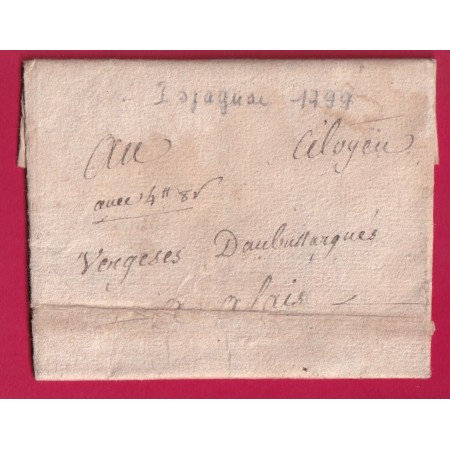 Ispagnac 1799
au Citoyen
avec 4 ₶ 8 s
Vergeses Daubussargues
a alais